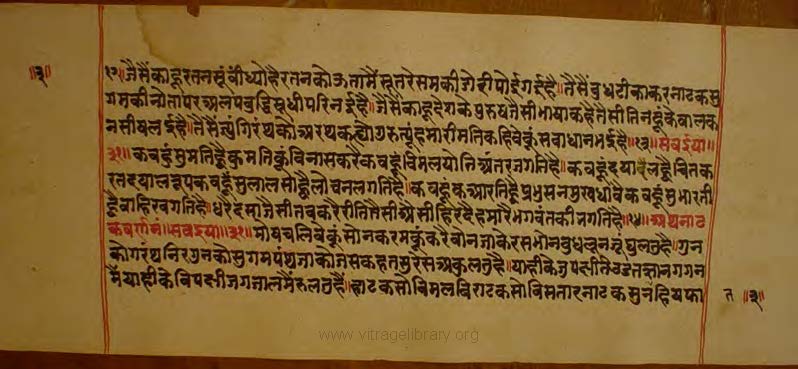 ॥३॥ १२॥जैसैंकाहूरतनसूंबींध्योहैरतनकोऊतामैंसूतरेसमकीडोरीपोईगईहै॥तैसैंबुधटीकाकरनाटकसु
गमकीनोतापरअलपबुद्धिसूधीपरिनईहै॥जैसैंकाहूदेशकेपुरुषजैसीभाषाकहैतैसीतिनहूंकेबालक
नसीषलईहै॥तैसैंज्युंगिरंथकोअरथकह्योगुरुत्यूंहमारीमतिकहिवेकूंसावधानभईहै॥१३॥सवईया॥
३१॥कबहूंसुमतिह्वैकुमतिकूंविनासकरैकबहूंविमलयोतिअंतरजगतिहै॥कबहूंदयाह्वैचितक
रतदयालरूपकबहूंसुलालसाह्वैलोचनलगतिहै॥कबहूंकआरतिह्वैप्रभुसनमुखआवैकबहूंसुभारती
ह्वैबाहिरबगतिहै॥धरैदसाजैसीतबकरैरीतितैसीऐसीहिरदैहमारैभगवंतकीभगतिहै॥१४॥अथनाट
कवर्णनं॥सवईया॥३१॥मोषचलिवेकूंसोनकरमकूंकरैबोनजाकेरसभोनबुधलूनज्यूंघुलतुहै॥गुन
कोगरंथनिरगुनकोसुगमपंथजाकोजसकहतसुरेसअकुलतुहै॥याहीकेजुपक्षीतेउडतज्ञानगगन
मैंयाहीकेविपक्षीजगजालमैंरुलतुहैं॥हाटकसोविमलविराटकसोविसतारनाटकसुनतहियफा
त ॥३॥
www.vitragelibrary.org